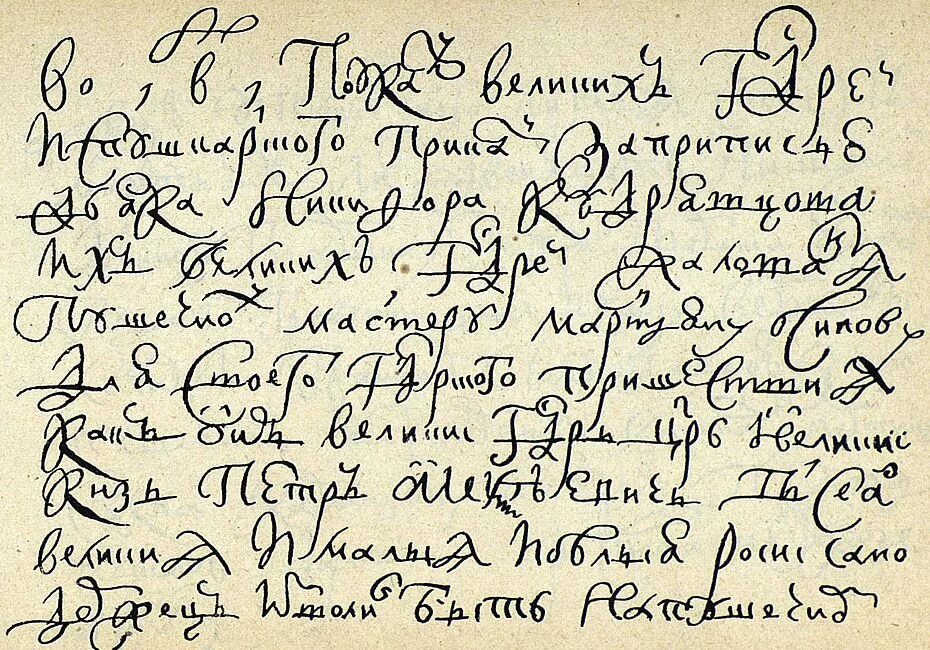 Во , в , По указꙋ великихъ Гдрей
ис пꙋшкарского приказꙋ за приписью
дьяка Никифора Кꙋдрявцова
ихъ великихъ Гдрей жалованья
Пꙋшечному мастерꙋ мартьянꙋ Осиповꙋ
для своего Гдрьского пришествия
какъ былъ великий Гдрь црь и великий
кнзь Петръ Алексѣевичь всеа
великия и малыя и бѣлыя росиi само
держецъ изволилъ быть на пꙋшечном